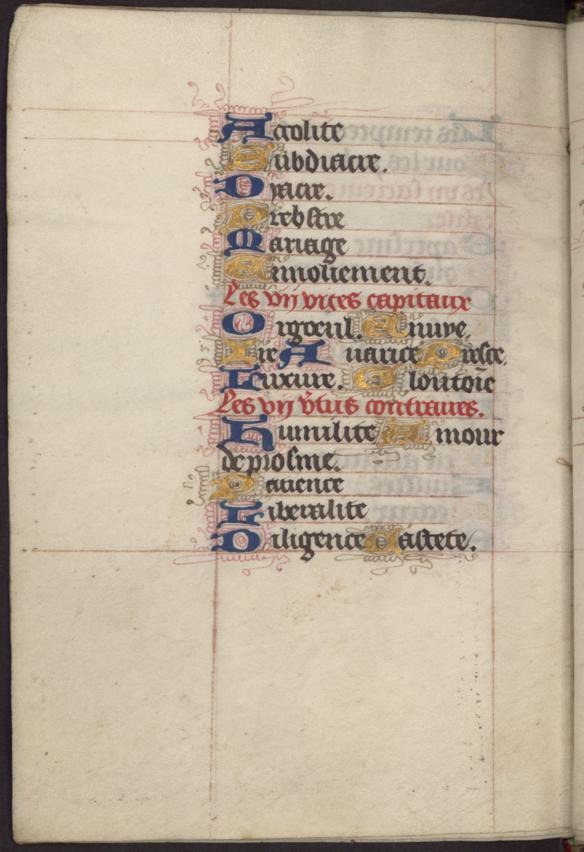 Accolite
Subdiacre.
Dyacre.
Prebstre
Mariage
Ennoliement.
Les vij vices capitaux
Orgoeul. Anuye
Ire Auarice Presce.
Luxure. Gloutoĩe
Les vij v̾tus contraires.
Humilite Amour
de prosme.
Pacience
Liberalite
Diligence Castete.